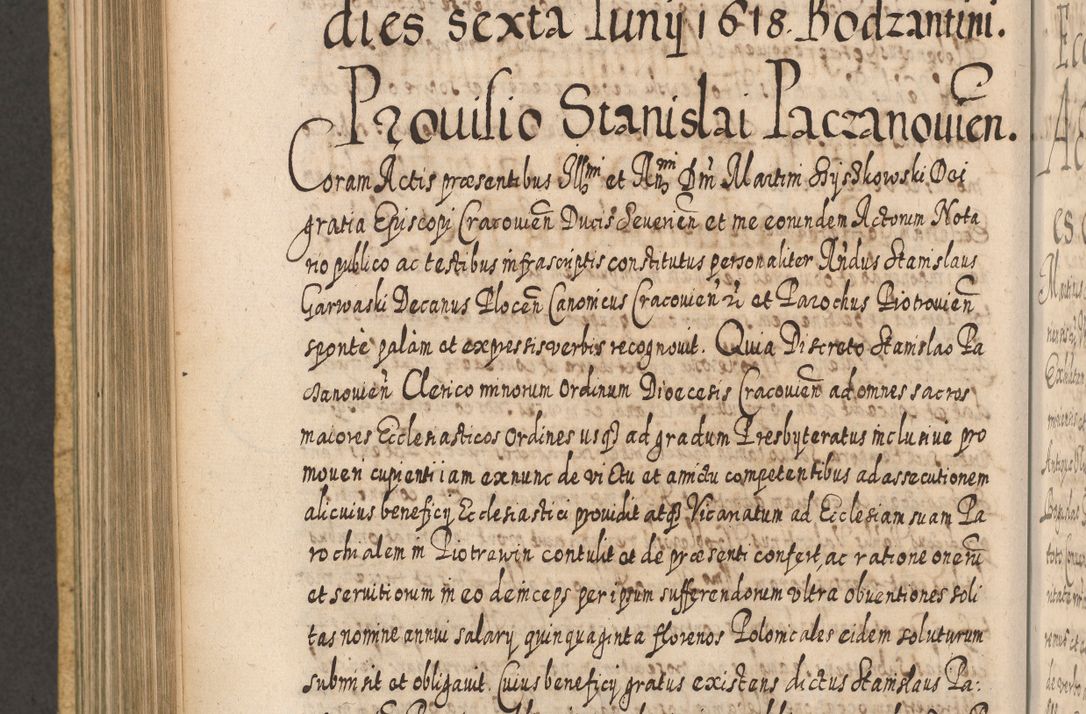 dies sexta Iunij 1618. Bodzantini.
Provisio Stanislai Paczanovien̄.
Coram Actis præsentibus Illmi et Rmi Dni Martini Szyszkowski Dei
gratia Episcopi Cracovien̄ Ducis Severien̄ et me eorundem Actorum Nota
rio publico ac testibus infrascriptis constitutus personaliter Rn̄dus Stanislaus
Garwaski Decanus Plocen̄ Canonicus Cracovien̄ et Parochus Piotrovien̄
sponte palàm et expressis verbis recognovit. Quia Discreto Stanislao Pa
czanovien̄ Clerico minorum Ordinum Dioecesis Cracovien̄ ad omnes sacros
maiores Ecclesiasticos Ordines usq3 ad gradum Presbyteratus inclusive pro
moveri cupienti iam ex nunc de victu et amictu competentibus ad assecutionem
alicuius beneficij Ecclesiastici providit atq3 Vicariatum ad Ecclesiam suam Pa
rochialem in Piotrawin contulit et de præsenti confert, ac ratione onerū
et servitiorum in eo deinceps per ipsum sufferendorum ultra obventiones soli
tas nomine annui salarij quinquaginta florenos Polonicales eidem soluturum
submisit et obligavit. Cuius beneficij gratus existens dictus Stanislaus Pa: